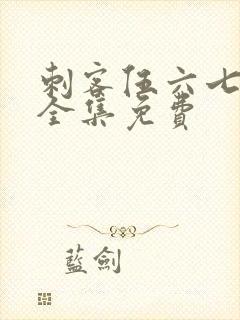 刺客伍六七
全集免費
藍劍